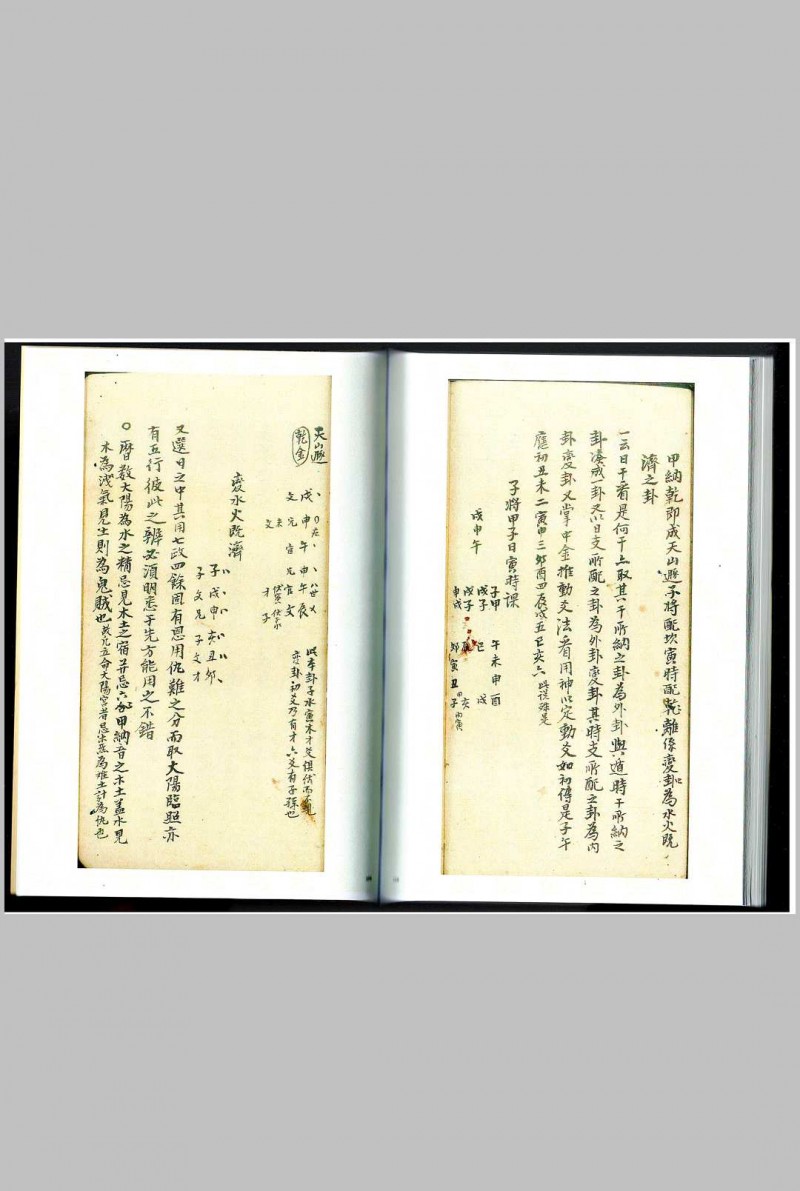 甲納乾即成天山遯子將配坎寅時配離係變卦為水火既
濟之卦
一云日干看是何干上取其干所納之卦為外卦與遁時干所納之
卦湊成一卦又以日支所配之卦為外卦變卦其時支所配之卦為內
卦變卦又掌中金推動爻法看用神以定動爻如初傳是子午
應初丑未二寅申三卯酉四辰戌五巳亥六
子將甲子日寅時課
戊申午
子甲 午未申酉
戊子 巳 戌
戊子 辰 亥
申戌 卯寅丑子 甲寅
天山遯
乾金
戌申午申午辰
父兄官兄官父
父 才子
此本卦子水寅木才爻俱伏而
變卦初爻乃有才六爻有子孫也
變水火既濟
子戌申亥丑卯
子父兄子父才
又選日之中其用七政四餘固有恩用仇難之分而取太陽臨照亦
有五行彼此之辨必須明悉于先方能用之不錯
○曆數太陽為水之精忌見木土之宿并忌六甲納音之木土蓋水見
木為洩氣見土則為鬼賊也